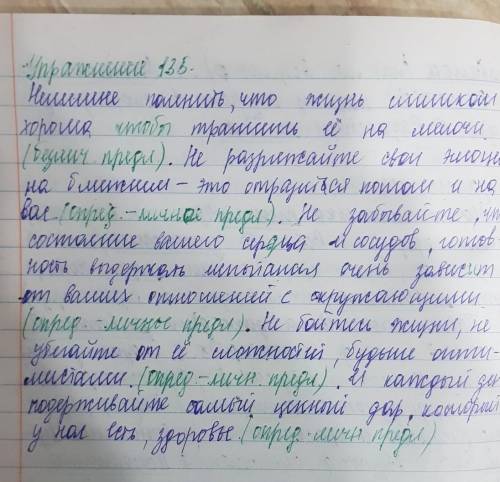 Упражнение 135.
Нелишне помнить, что жизнь слишком
хороша, чтобы тратить её на мелочи.
(безлич предл). Не разряжайте свои эмоц
на ближнем – это отразится потом и на
вас (опред.-личное предл). Не забывайте, чт
состояние вашего сердца и сосудов, готов
ность выдержать испытания очень зависит
от ваших отношений с окружающими.
(опред-личные предл). Не бойтесь жизни, не
убегайте от её сложностей, будьте опти-
мистами. (опред-личн. предл). И каждый де
подерживайте самый ценный дар, который
у нас есть, здоровье. (опред-личн предл)